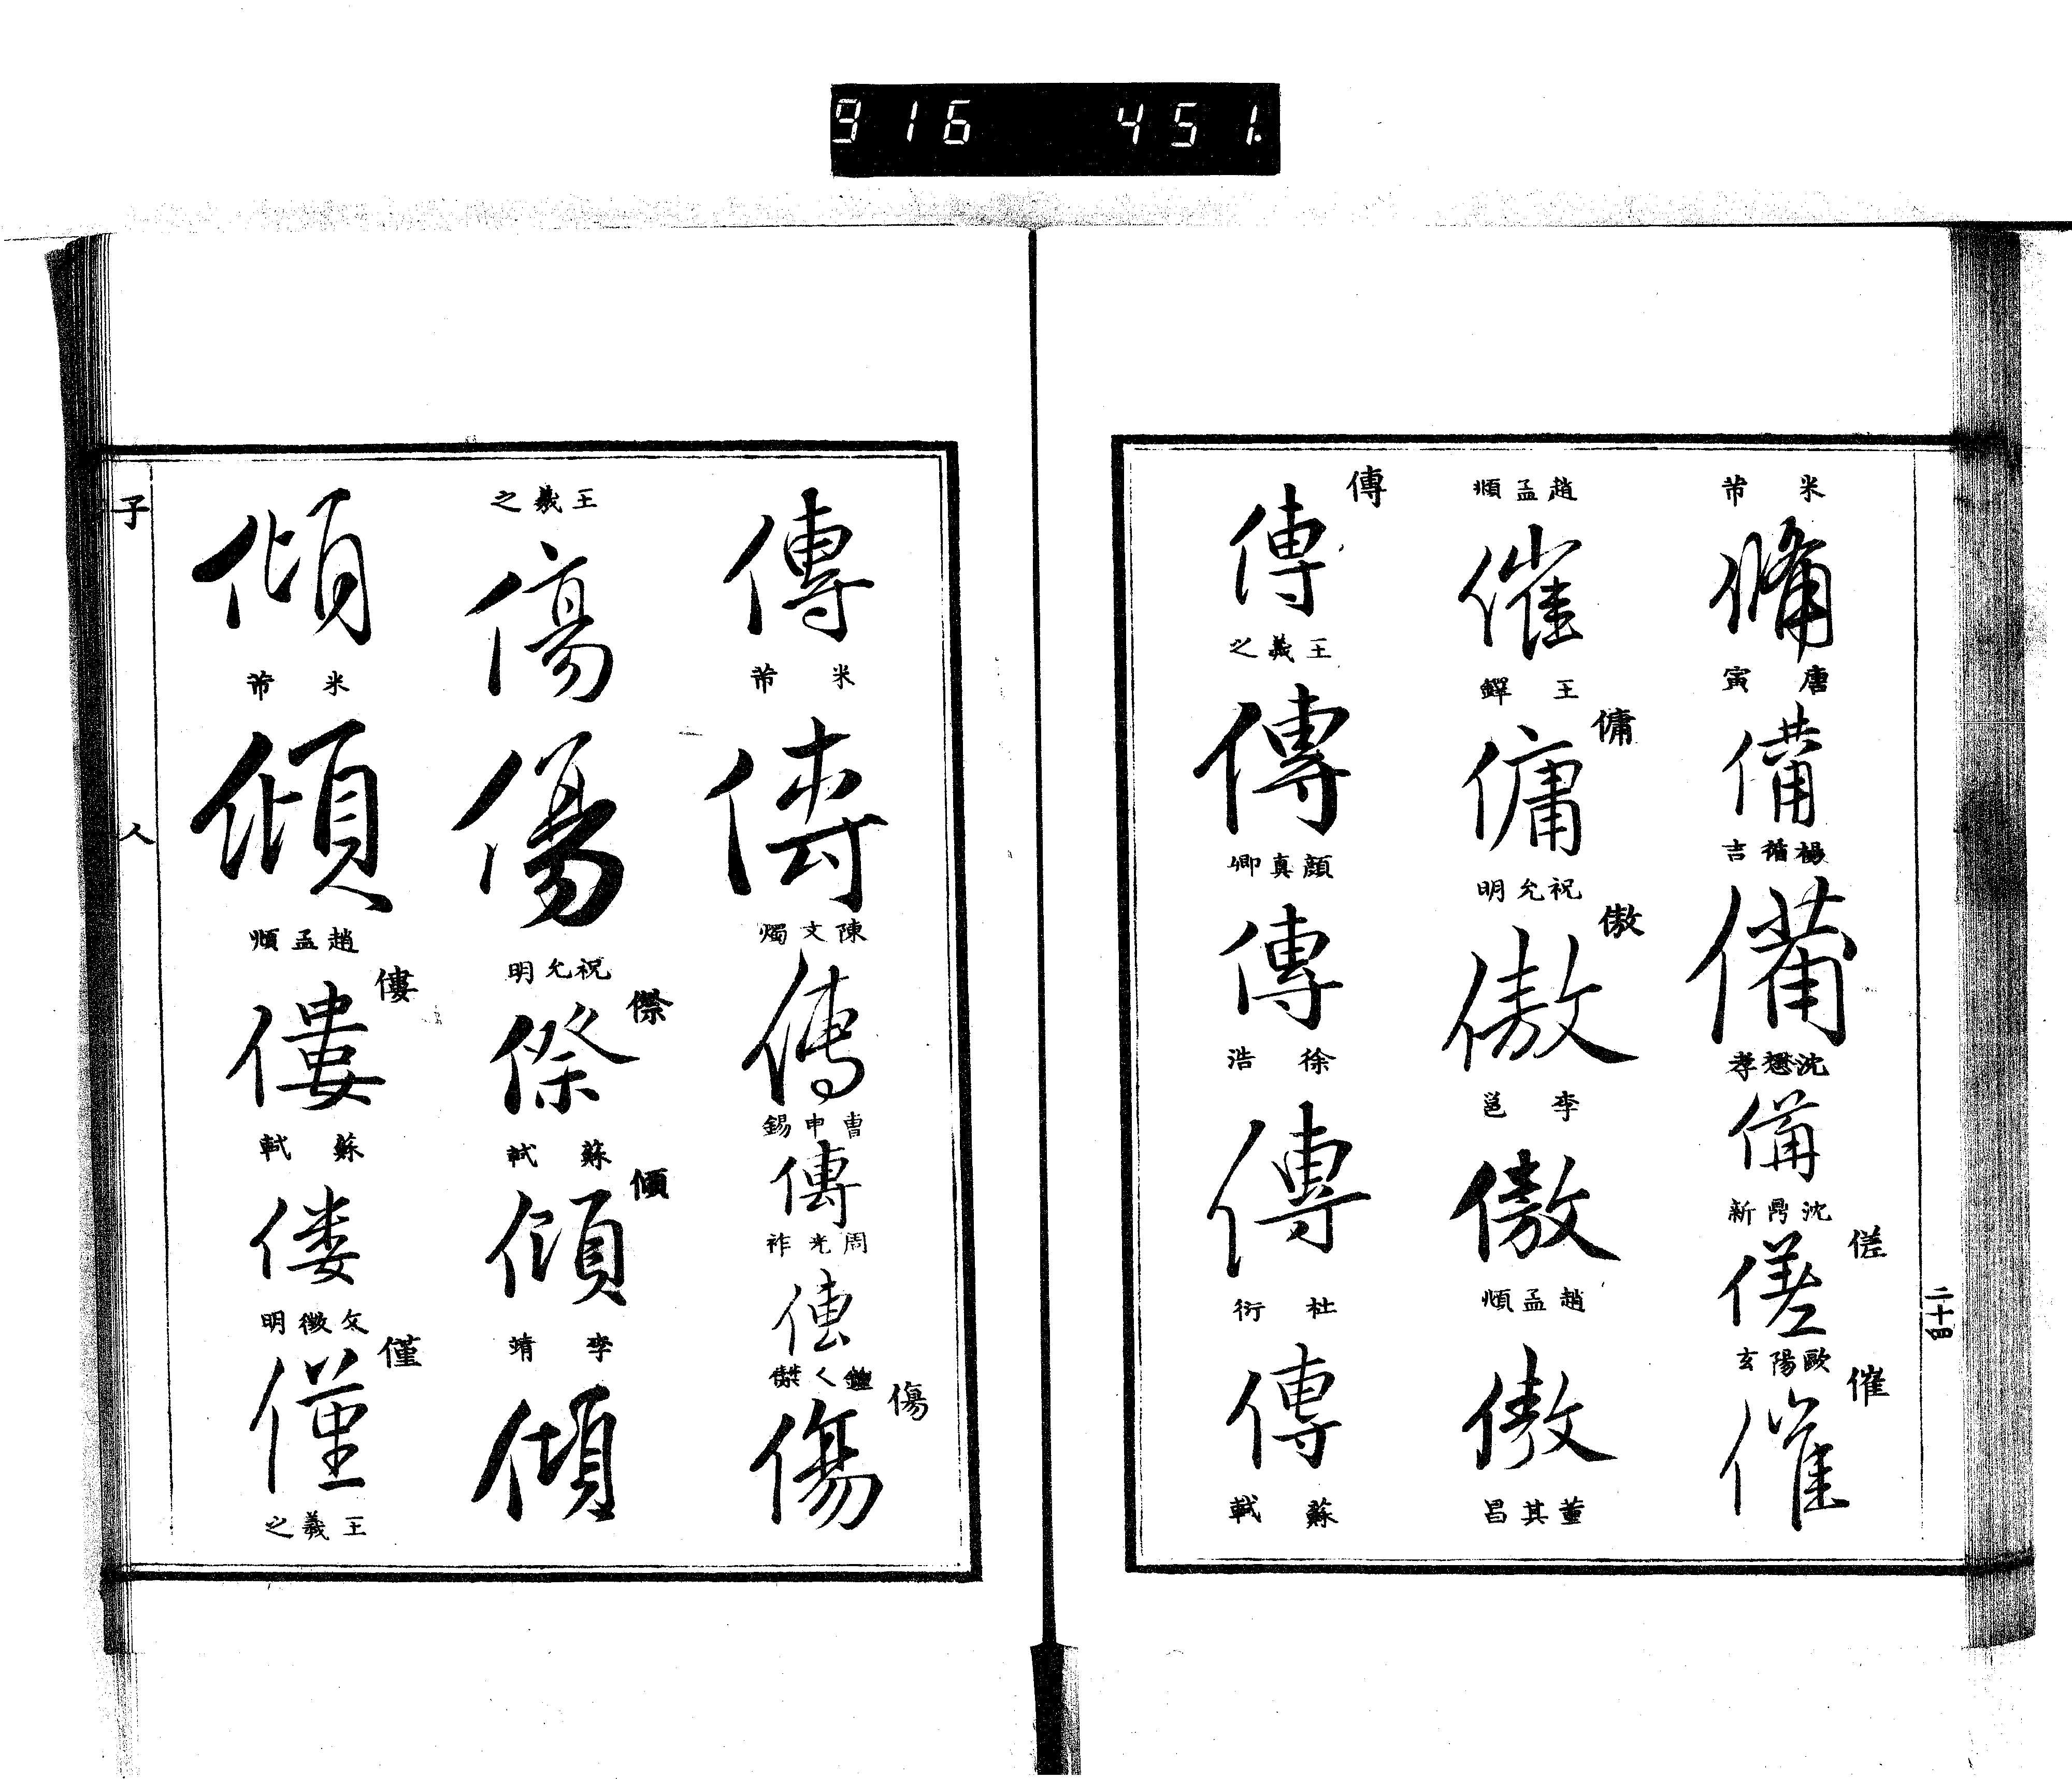 916 451.
米芾
備
唐寅
備
楊循吉
備
沈懋孝
備
沈鼎新
傞
傞
歐陽玄
催
催
二十四
趙孟頫
催
王鐸
傭
傭
祝允明
傲
傲
李邕
傲
趙孟頫
傲
董其昌
傳
傳
王羲之
傳
顏真卿
傳
徐浩
傳
杜衍
傳
蘇軾
傳
米芾
傳
陳文燭
傳
曹申錫
傳
周光祚
傳
傷
傷
王羲之
傷
傷
祝允明
傺
傺
蘇軾
傾
傾
李靖
傾
傾
米芾
傾
趙孟頫
僂
僂
蘇軾
僂
文徵明
僅
僅
王羲之
子
人